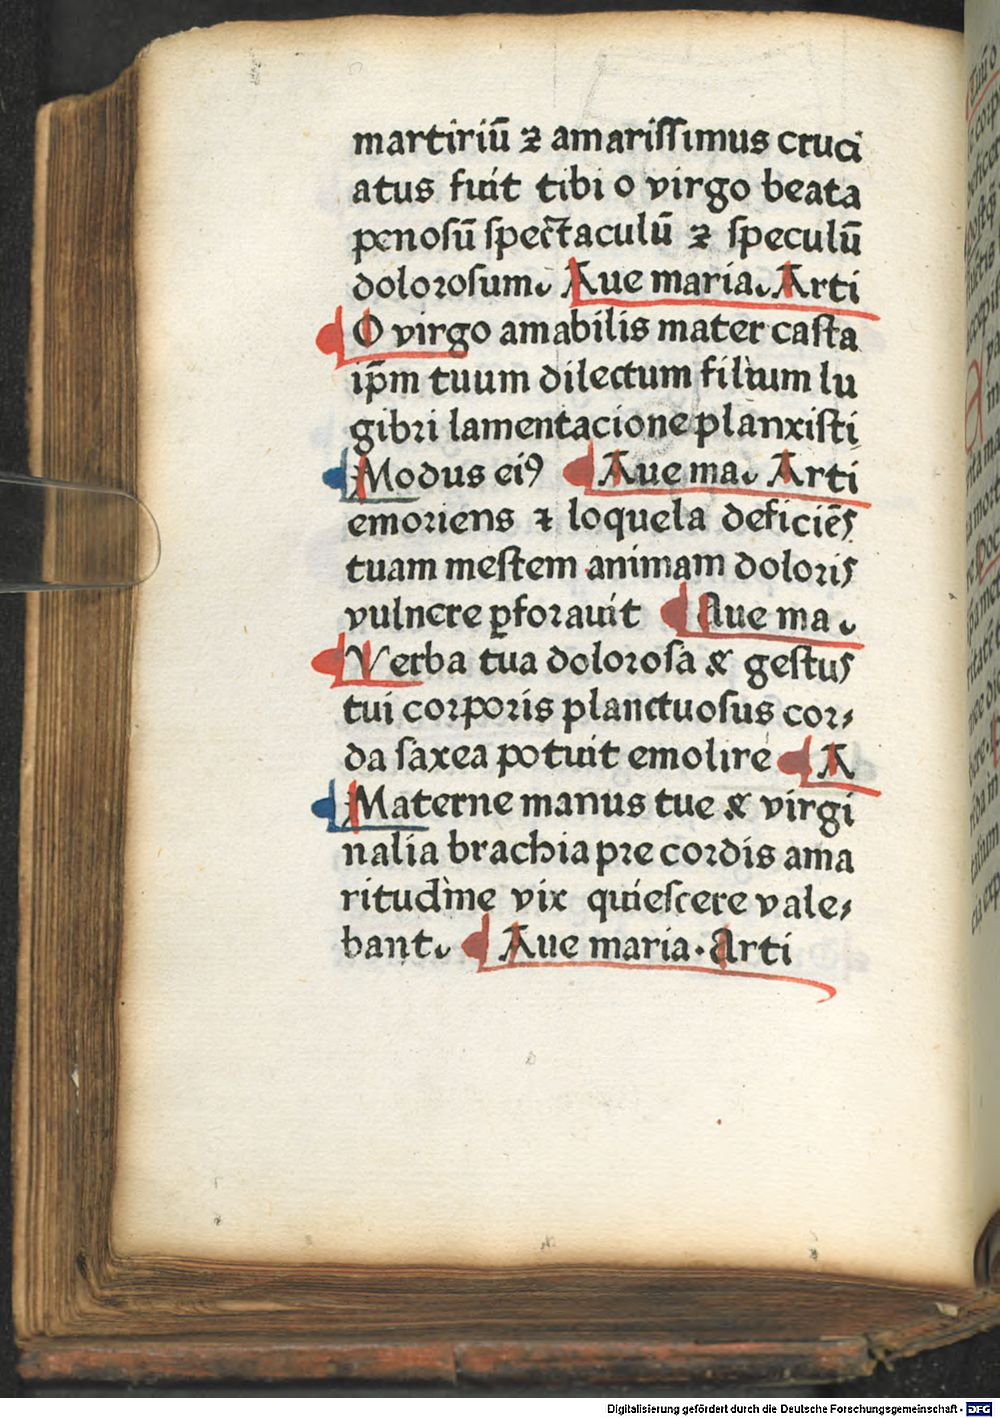 martiriū ⁊ amariſſimus cruci
atus fuit tibi o virgo beata
penoſū ſpectaculū ⁊ ſpeculū
doloꝛoſum. Aue maria. Arti
O virgo amabilis mater caſta
ip̄m tuum dilectum filium lu
gibꝛi lamentacione planxiſti
Modus eiꝰ Aue ma. Arti
emoꝛiens ⁊ loquela deficiēs
tuam meſtem animam doloꝛis
vulnere ꝑfoꝛauit Aue ma.
Verba tua doloꝛoſa & geſtus
tui coꝛpoꝛis planctuoſus coꝛ⸗
da ſaxea potuit emolire A
Materne manus tue & virgi
nalia brachia pꝛe coꝛdis ama
ritudine vix quieſcere vale⸗
bant. Aue maria. Arti
Digitalisierung gefördert durch die Deutsche Forschungsgemeinschaft - DFG